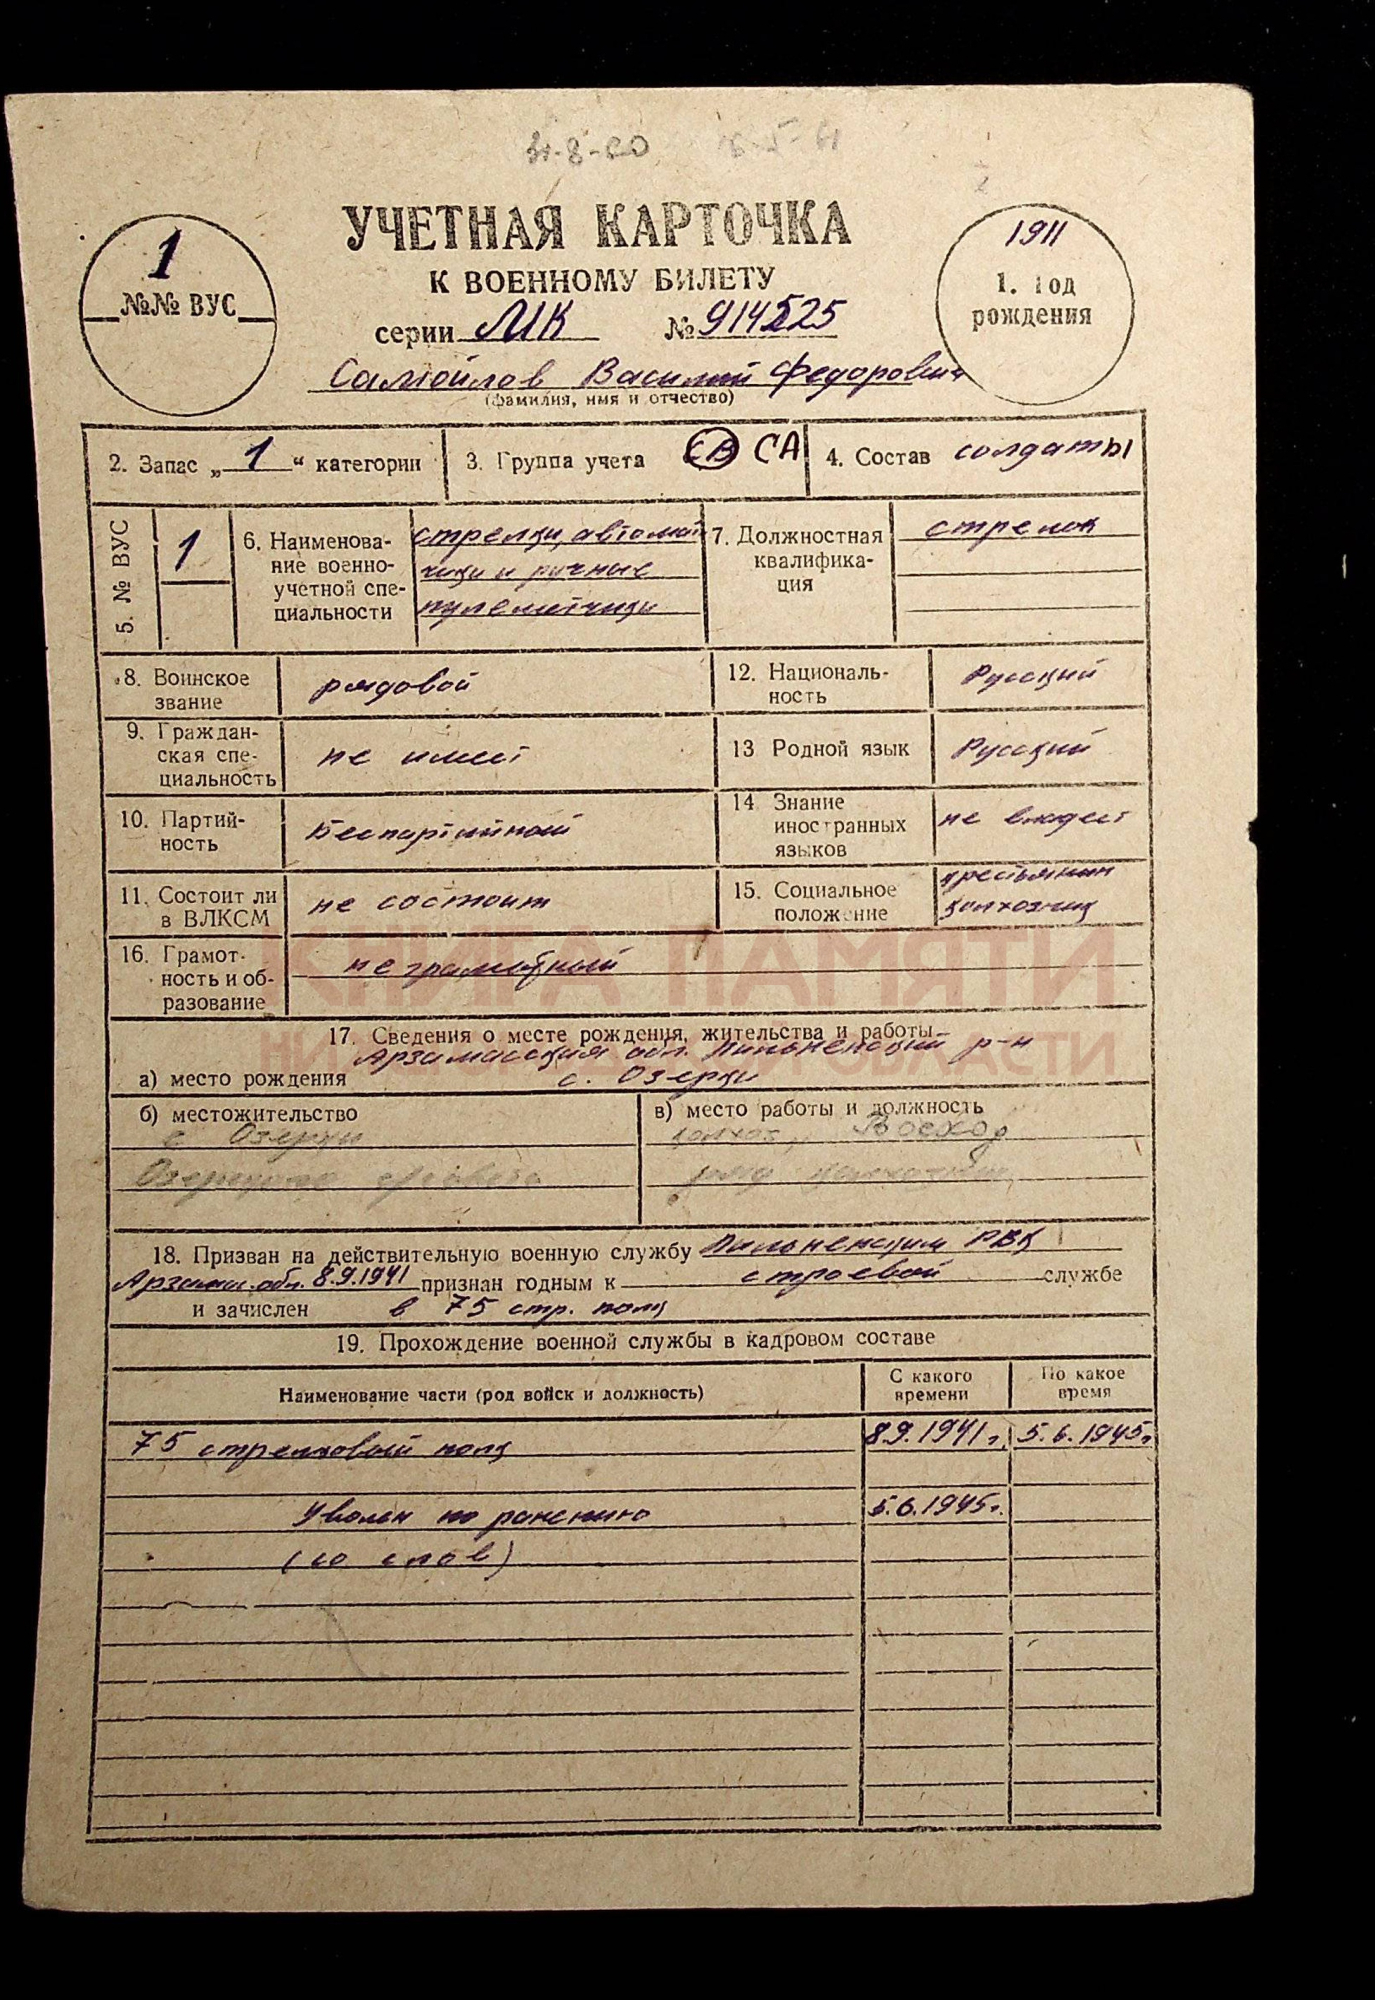 31-8-60
1911
УЧЕТНАЯ КАРТОЧКА
1
№№ ВУС
К ВОЕННОМУ БИЛЕТУ
1. Год
рождения
серии МК № 914525
Самойлов Василий Федорович
(фамилия, имя и отчество)
2. Запас „1“ категории
3. Группа учета СА
4. Состав солдаты
5. № ВУС
1
6. Наименова-
ние военно-
учетной спе-
циальности
стрелки, автомат
чики и ручные
пулеметчики
7. Должностная
квалифика-
ция
стрелок
8. Воинское
звание
рядовой
12. Националь-
ность
Русский
9. Граждан-
ская спе-
циальность
не имеет
13 Родной язык
Русский
10. Партий-
ность
Беспартийный
14 Знание
иностранных
языков
не владеет
11. Состоит ли
в ВЛКСМ
не состоит
15. Социальное
положение
крестьянин
колхозник
16. Грамот-
ность и об-
разование
неграмотный
КНИГА ПАМЯТИ
НИЖЕГОРОДСКОЙ ОБЛАСТИ
17. Сведения о месте рождения, жительства и работы
Арзамасская обл. Пильненский р-н
а) место рождения с. Озерки
б) местожительство
с Озерки
Озерского с/совета
в) место работы и должность
колхоз Восход
ряд колхозник
18. Призван на действительную военную службу Пильненским РВК
Арзамас. обл. 8.9.1941 признан годным к строевой службе
и зачислен в 75 стр. полк
19. Прохождение военной службы в кадровом составе
Наименование части (род войск и должность)
С какого
времени
По какое
время
75 стрелковый полк 8.9.1941г. 5.6.1945г
Уволен по ранению 5.6.1945г.
(со слов)